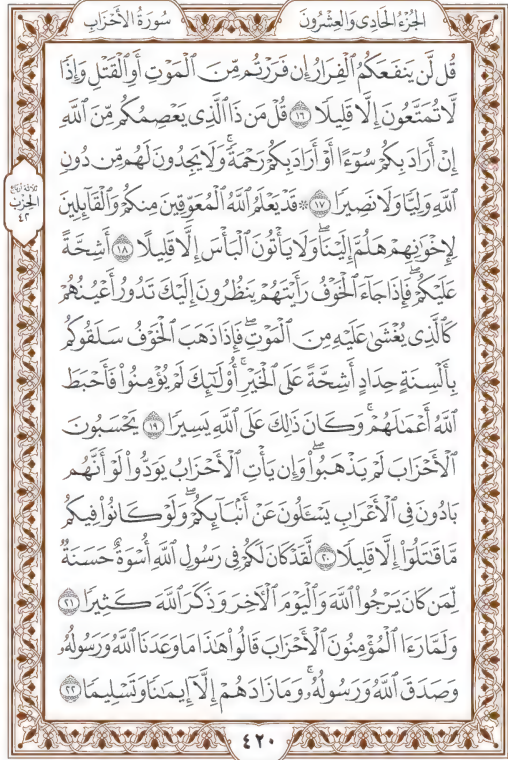 الجُزْءُ الحَادِى وَالعِشْرُونَ
سُورَةُ الأَحْزَابِ
قُل لَّن يَنفَعَكُمُ ٱلْفِرَارُ إِن فَرَرْتُم مِّنَ ٱلْمَوْتِ أَوِ ٱلْقَتْلِ وَإِذًا
لَّا تُمَتَّعُونَ إِلَّا قَلِيلًا ١٦ قُلْ مَن ذَا ٱلَّذِى يَعْصِمُكُم مِّنَ ٱللَّهِ
إِنْ أَرَادَ بِكُمْ سُوٓءًا أَوْ أَرَادَ بِكُمْ رَحْمَةً ۚ وَلَا يَجِدُونَ لَهُم مِّن دُونِ
ٱللَّهِ وَلِيًّا وَلَا نَصِيرًا ١٧ ۞ قَدْ يَعْلَمُ ٱللَّهُ ٱلْمُعَوِّقِينَ مِنكُمْ وَٱلْقَآئِلِينَ
ثلاثة أرباع
الحزب
٤٢
لِإِخْوَٰنِهِمْ هَلُمَّ إِلَيْنَا ۖ وَلَا يَأْتُونَ ٱلْبَأْسَ إِلَّا قَلِيلًا ١٨ أَشِحَّةً
عَلَيْكُمْ ۖ فَإِذَا جَآءَ ٱلْخَوْفُ رَأَيْتَهُمْ يَنظُرُونَ إِلَيْكَ تَدُورُ أَعْيُنُهُمْ
كَٱلَّذِى يُغْشَىٰ عَلَيْهِ مِنَ ٱلْمَوْتِ ۖ فَإِذَا ذَهَبَ ٱلْخَوْفُ سَلَقُوكُم
بِأَلْسِنَةٍ حِدَادٍ أَشِحَّةً عَلَى ٱلْخَيْرِ ۚ أُو۟لَٰٓئِكَ لَمْ يُؤْمِنُوا۟ فَأَحْبَطَ
ٱللَّهُ أَعْمَٰلَهُمْ ۚ وَكَانَ ذَٰلِكَ عَلَى ٱللَّهِ يَسِيرًا ١٩ يَحْسَبُونَ
ٱلْأَحْزَابَ لَمْ يَذْهَبُوا۟ ۖ وَإِن يَأْتِ ٱلْأَحْزَابُ يَوَدُّوا۟ لَوْ أَنَّهُم
بَادُونَ فِى ٱلْأَعْرَابِ يَسْـَٔلُونَ عَنْ أَنۢبَآئِكُمْ ۖ وَلَوْ كَانُوا۟ فِيكُم
مَّا قَٰتَلُوٓا۟ إِلَّا قَلِيلًا ٢٠ لَّقَدْ كَانَ لَكُمْ فِى رَسُولِ ٱللَّهِ أُسْوَةٌ حَسَنَةٌ
لِّمَن كَانَ يَرْجُوا۟ ٱللَّهَ وَٱلْيَوْمَ ٱلْءَاخِرَ وَذَكَرَ ٱللَّهَ كَثِيرًا ٢١
وَلَمَّا رَءَا ٱلْمُؤْمِنُونَ ٱلْأَحْزَابَ قَالُوا۟ هَٰذَا مَا وَعَدَنَا ٱللَّهُ وَرَسُولُهُۥ
وَصَدَقَ ٱللَّهُ وَرَسُولُهُۥ ۚ وَمَا زَادَهُمْ إِلَّآ إِيمَٰنًا وَتَسْلِيمًا ٢٢
٤٢٠